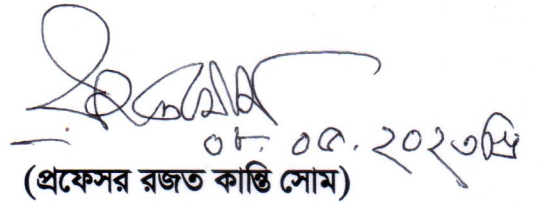 ০৮. ০৫. ২০২৩খ্রি
(প্রফেসর রজত কান্তি সোম)